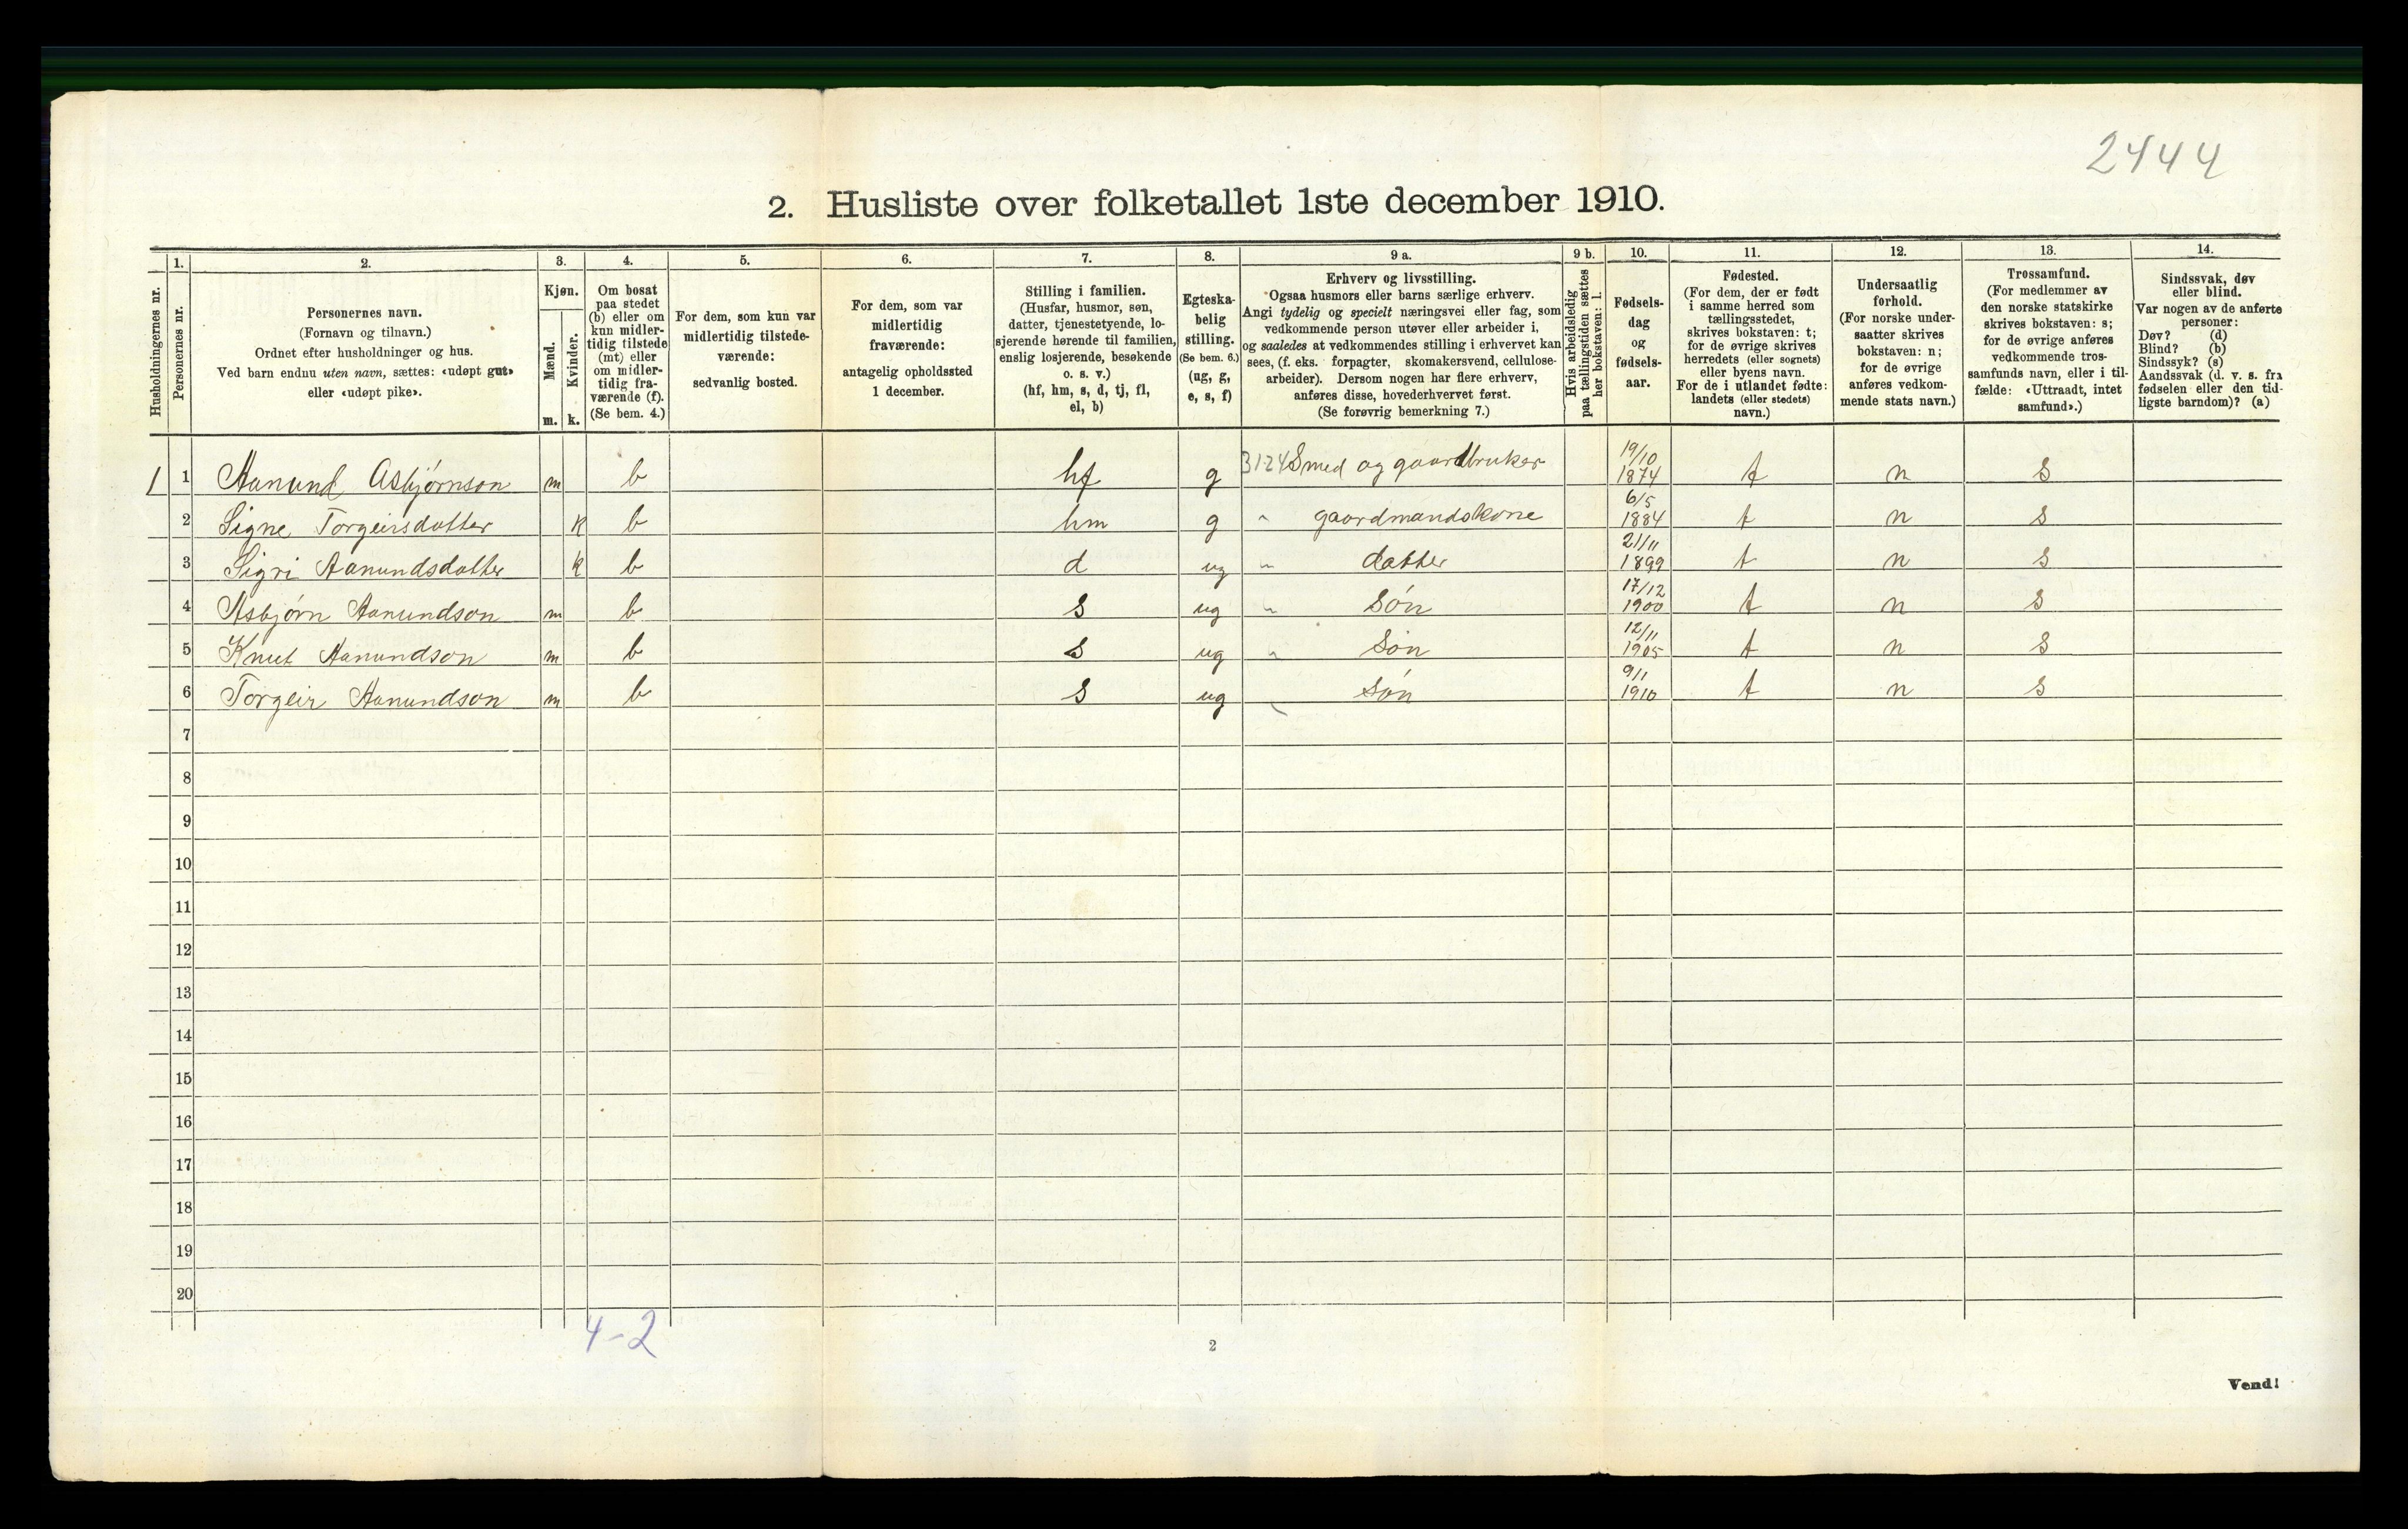 2444
2. Husliste over folketallet 1ste december 1910.
Husholdningernes nr.
1.
Personernes nr.
2.
Personernes navn.
(Fornavn og tilnavn.)
Ordnet efter husholdninger og hus.
Ved barn endnu uten navn, sættes: «udøpt gut»
eller «udøpt pike».
3.
Kjøn.
Mænd.
m.
Kvinder.
k.
4.
Om bosat
paa stedet
(b) eller om
kun midler-
tidig tilstede
(mt) eller
om midler-
tidig fra-
værende (f).
(Se bem. 4.)
5.
For dem, som kun var
midlertidig tilstede-
værende:
sedvanlig bosted.
6.
For dem, som var
midlertidig
fraværende:
antagelig opholdssted
1 december.
7.
Stilling i familien.
(Husfar, husmor, søn,
datter, tjenestetyende, lo-
sjerende hørende til familien,
enslig losjerende, besøkende
o. s. v.)
(hf, hm, s, d, tj, fl,
el, b)
8.
Egteska-
belig
stilling.
(Se bem. 6.)
(ug, g,
e, s, f)
9 a.
Erhverv og livsstilling.
Ogsaa husmors eller barns særlige erhverv.
Angi tydelig og specielt næringsvei eller fag, som
vedkommende person utøver eller arbeider i,
og saaledes at vedkommendes stilling i erhvervet kan
sees, (f. eks. forpagter, skomakersvend, cellulose-
arbeider). Dersom nogen har flere erhverv,
anføres disse, hovederhvervet først.
(Se forøvrig bemerkning 7.)
9 b.
Hvis arbeidsledig
paa tællingstiden sættes
her bokstaven: l.
10.
Fødsels-
dag
og
fødsels-
aar.
11.
Fødested.
(For dem, der er født
i samme herred som
tællingsstedet,
skrives bokstaven: t;
for de øvrige skrives
herredets (eller sognets)
eller byens navn.
For de i utlandet fødte:
landets (eller stedets)
navn.)
12.
Undersaatlig
forhold.
(For norske under-
saatter skrives
bokstaven: n;
for de øvrige
anføres vedkom-
mende stats navn.)
13.
Trossamfund.
(For medlemmer av
den norske statskirke
skrives bokstaven: s;
for de øvrige anføres
vedkommende tros-
samfunds navn, eller i til-
fælde: «Uttraadt, intet
samfund».)
14.
Sindssvak, døv
eller blind.
Var nogen av de anførte
personer:
Døv? (d)
Blind? (b)
Sindssyk? (s)
Aandssvak (d. v. s. fra
fødselen eller den tid-
ligste barndom)? (a)
1 1 Aanund Asbjørnson m b hf g 3124 Smed og gaardbruker 19/10 1874 t n s
2 Signe Torgeirsdatter k b hm g " gaardmandskone 6/5 1884 t n s
3 Sigri Aanundsdatter k b d ug " datter 21/11 1899 t n s
4 Asbjørn Aanundson m b s ug " søn 17/12 1900 t n s
5 Knut Aanundson m b s ug " søn 12/11 1905 t n s
6 Torgeir Aanundson m b s ug " søn 9/1 1910 t n s
7
8
9
10
11
12
13
14
15
16
17
18
19
20
4-2
2
Vend!